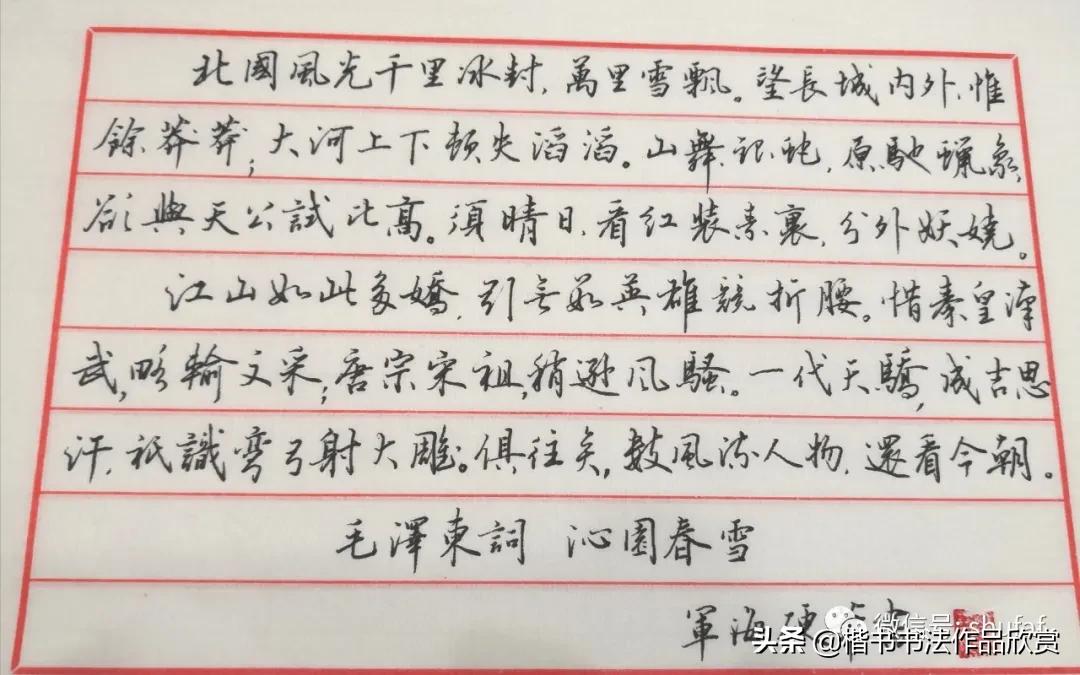 北國風光千里冰封,萬里雪飄。望長城内外,惟
餘莽莽;大河上下頓失滔滔。山舞銀蛇,原馳蠟象,
欲與天公試比高。須晴日,看红装素裹,分外妖嬈。
江山如此多嬌,引無數英雄競折腰。惜秦皇漢
武,略輸文采;唐宗宋祖,稍遜风騷。一代天驕,成吉思
汗,祇識彎弓射大雕。俱往矣,數風流人物,還看今朝。
毛澤東詞 沁園春雪
軍海硬筆
微信号: shufaf
头条@楷书书法作品欣赏